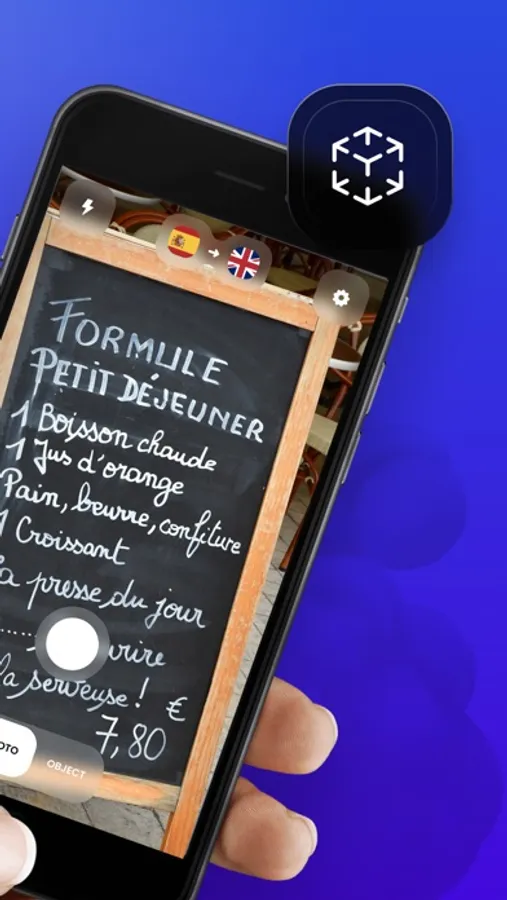 FORMULE
PETIT DÉJEUNER
1 Boisson chaude
1 Jus d'orange
Pain, beurre, confiture
1 Croissant
la presse du jour
la serveuse! €
7,80
OBJECT